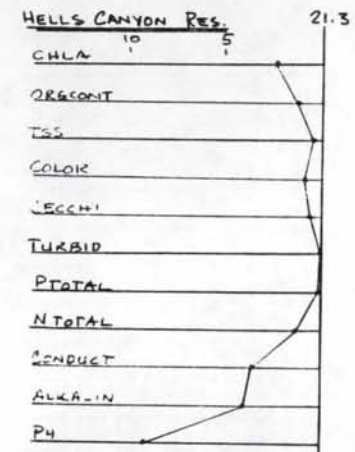 HELLS CANYON RES.
21.3
10 5
CHLA
ORGCONT
TSS
COLOR
SECCHI
TURBID
PTOTAL
NTOTAL
CONDUCT
ALKALIN
PH